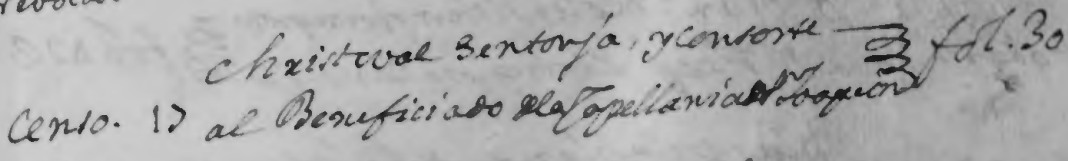 Christoval Sentonja, y consorte fol. 30
Censo. 17 al Beneficiado dela Capellania de